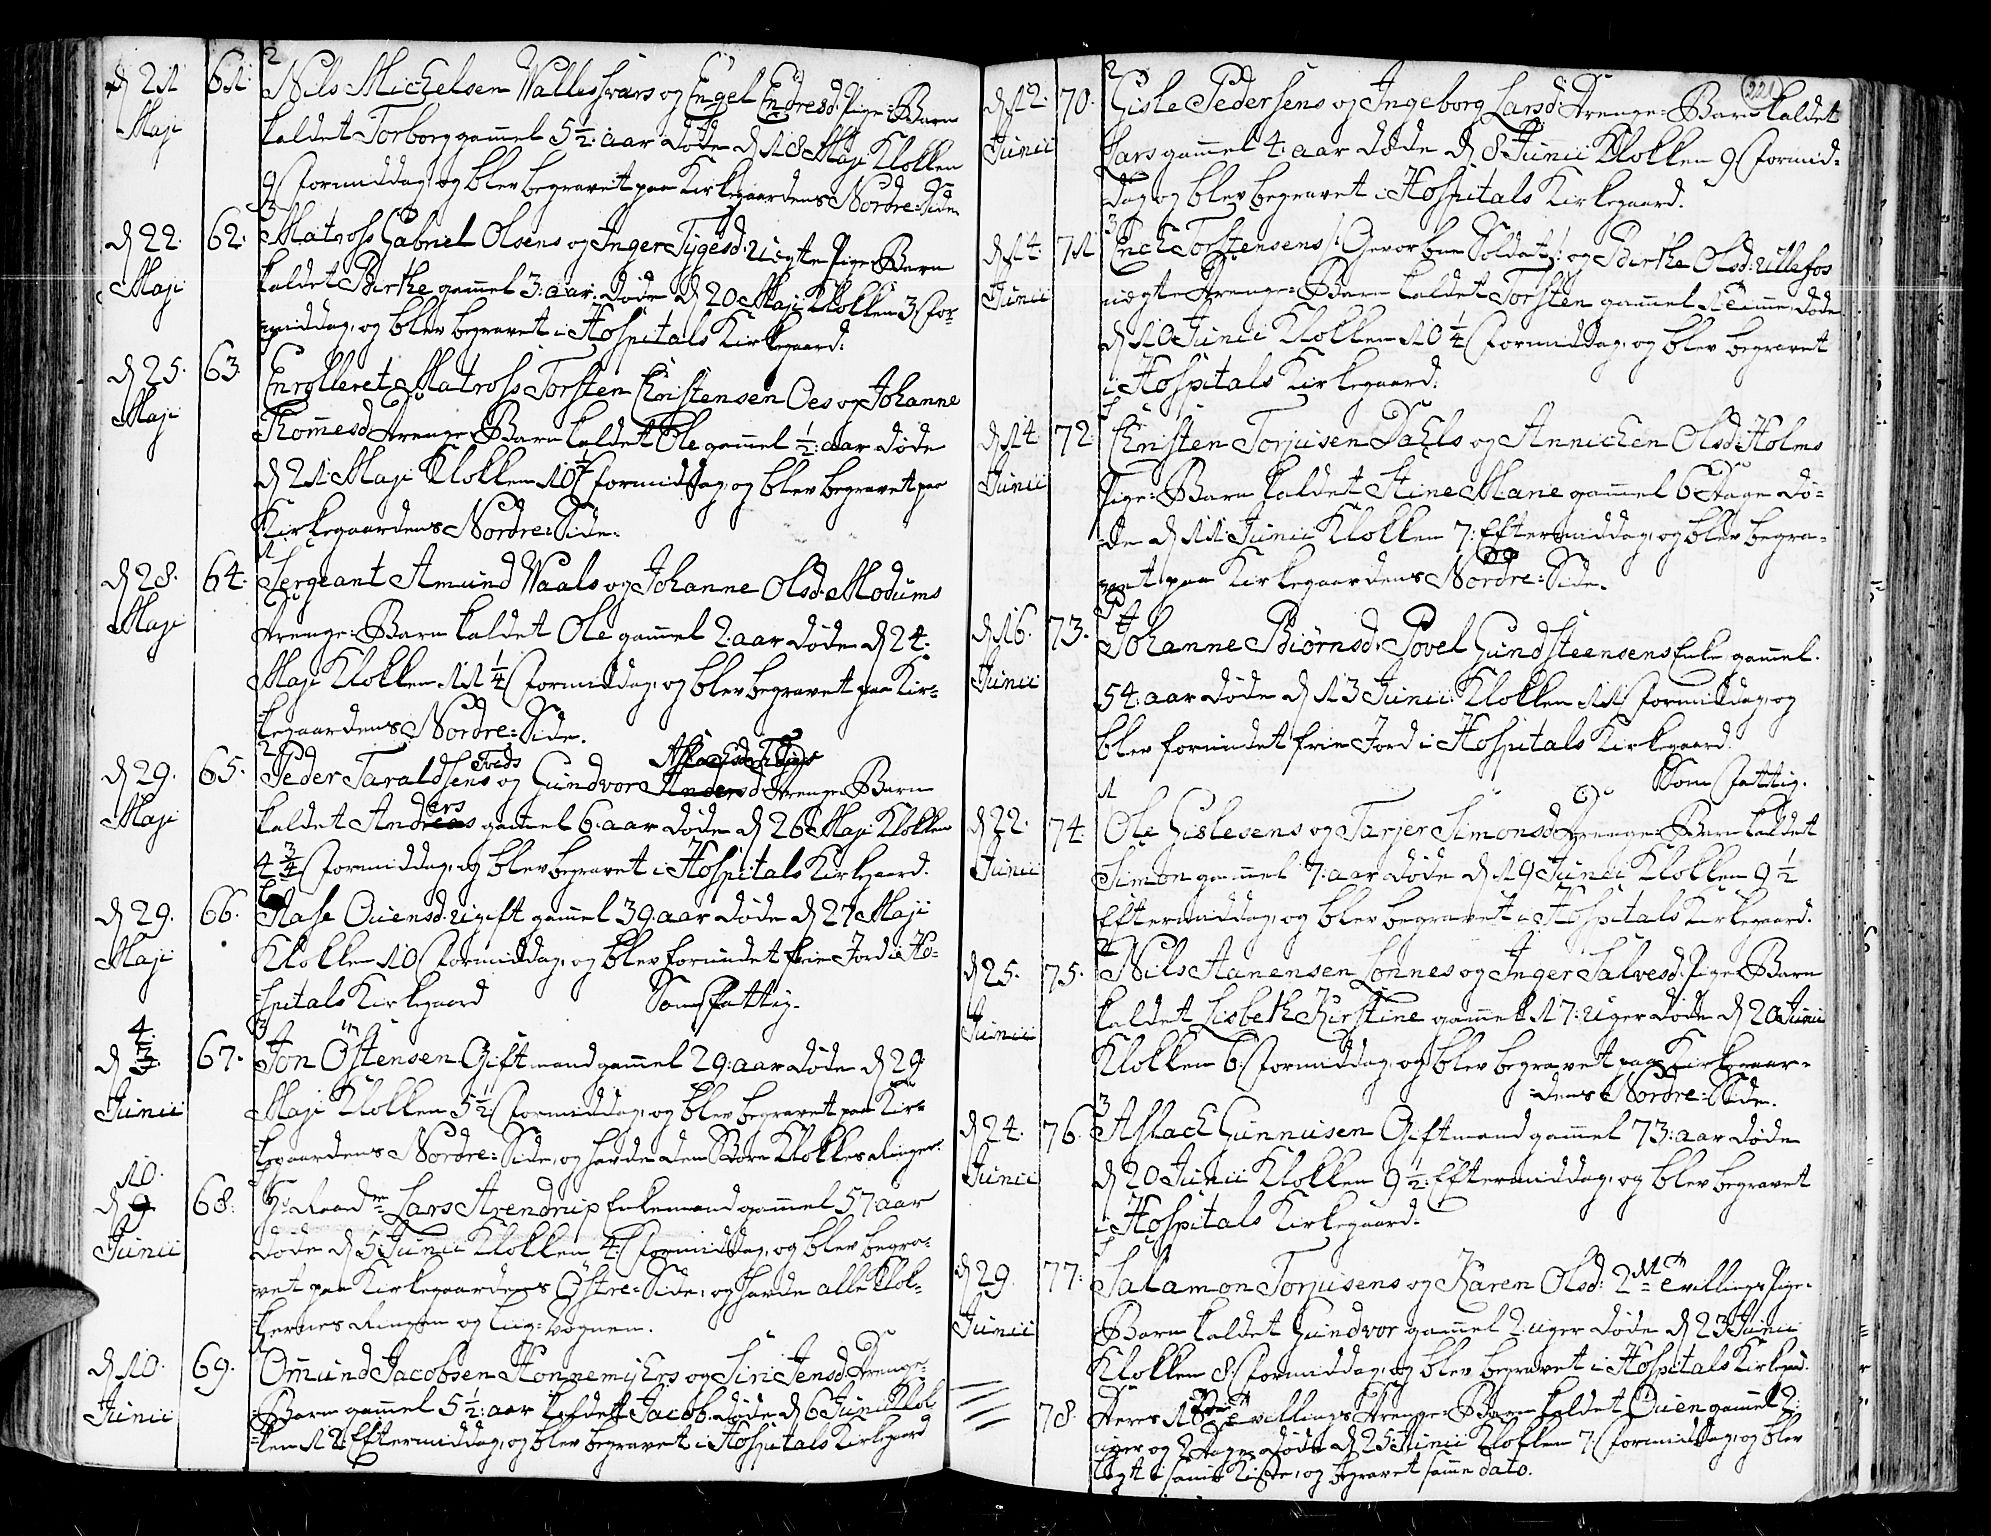 d 21 Maji
61.
Nils Michelsen Vallesværs og Engel Endresd. Pige=Barn
kaldet Torborg gammel 5½ aar døde d 18 Maji Klokken
9 formiddag, og blev begravet paa Kirkegaardens Nordre=Side.
d 22. Maji
62.
Matross Gabriel Olsens og Inger Tygesd. uægte Pige Barn
kaldet Birthe gammel 3: aar. døde d 20 Maji Klokken 3 for-
middag, og blev begravet i Hospitals Kirkegaard.
d 25. Maji
63
Enrolleret Matross Torsten Christensen Oes og Johanne
Thommesd drenge Barn kaldet Ole gammel ½: aar døde
d 21 Maji Klokken 10 formiddag, og blev begravet paa
Kirkegaardens Nordre=Side.
d 28. Maji
64.
Sergeant Amund Waals og Johanne Olsd. Modums
drenge=Barn kaldet Ole gammel 2: aar døde d 24.
Maji Klokken 11¼ formiddag, og blev begravet paa Kir=
=kegaardens Nordre=Side.
d 29. Maji
65.
Peder Taraldsens Tveds og Gundvor Andersd drenge Barn
kaldet Anders gammel 6. aar døde d 26 Maji Klokken
4¾ formiddag, og blev begravet i Hospitals Kirkegaard.
d 29. Maji
66.
Aase Ouensd. ugift gammel 39. aar døde d 27 Maji
Klokken 10 formiddag, og blev forundet frie Jord i Ho=
=spitals Kirkegaard Som fattig.
d 4. Junii
67.
Jon Östensen Giftmand gammel 29: aar døde d 29
Maji Klokken 5½ formiddag, og blev begravet paa Kir=
=kegaardens Nordre=Side, og havde den Store Klokkes Ringer.
d 10. Junii
68.
Hr Raadm Lars Arendrup Enkemand gammel 57 aar
døde d 5 Junii Klokken 4: formiddag, og blev begra=
=vet paa Kirkegaardens Östre=Side, og havde alle Klok=
=kernes Ringen og Liig=Vognen.
d 10. Junii
69.
Omund Jacobsen Honnemyhrs og Siri Jensd drenge=
=Barn gammel 5½: aar kaldet Jacob. døde d 6 Junii Klok
=ken 12 Eftermiddag, og blev begravet i Hospitals Kirkegaard
221
d 12. Junii
70.
Gisle Pedersens og Ingeborg Larsd: drenge=Barn kaldet
Lars gammel 4: aar døde d 8 Junii Klokken 9 formid=
dag og blev begravet i Hospitals Kirkegaard.
d 14. Junii
71
Erich Torstensens /: Gevorben Soldat :/ og Birthe Olsd: Ullefos
uægte drenge=Barn kaldet Torsten gammel 1 time, døde
d 10 Junii Klokken 10¼ formiddag, og blev begravet
i Hospitals Kirkegaard.
d 14 Junii
72
Christen Torjusen Dahls og Annichen Olsd: Holms
Pige=Barn kaldet Stine Marie gammel 6 dage dø=
=de d 11 Junii Klokken 7: Eftermiddag, og blev begra=
vet paa Kirkegaardens Nordre=Side.
d 16. Junii
73.
Johanne Biørnsd. Povel Gundsteensens Enke gammel.
54: aar døde d 13 Junii Klokken 11 formiddag, og
blev forundet frie Jord i Hospitals Kirkegaard
Som fattig.
d 22. Junii
74.
Ole Gislesens og Tarjer Simonsd drenge=Barn kaldet
Simon gammel 7: aar døde d 19 Junii Klokken 9½
Eftermiddag, og blev begravet i Hospitals Kirkegaard.
d 25. Junii
75.
Nils Aanensen Lønnes og Inger Salvesd. Pige=Barn
kaldet Lisbeth Kirstine gammel 17: uger døde d 20 Junii
Klokken 6: formiddag, og blev begravet paa Kirkegaar=
=dens Nordre=Side.
d 24. Junii
76.
Aslach Gunnusen Giftmand gammel 73: aar døde
d 20 Junii Klokken 9½: Eftermiddag, og blev begravet
i Hospitals Kirkegaard.
d 29. Junii
77.
Salamon Torjusens og Karen Olsd: 2de Tvillings Pige=
Barn kaldet Gundvor gammel 2: uger døde d 23 Junii
Klokken 8 formiddag, og blev begravet i Hospitals Kirkegaard.
78.
Deres Tvillings drenge=Barn kaldet Ouen gammel 2:
uger og 2 dage døde d 25 Junii Klokken 7 formiddag, og blev
lagt i samme Kiste, og begravet samme dato.